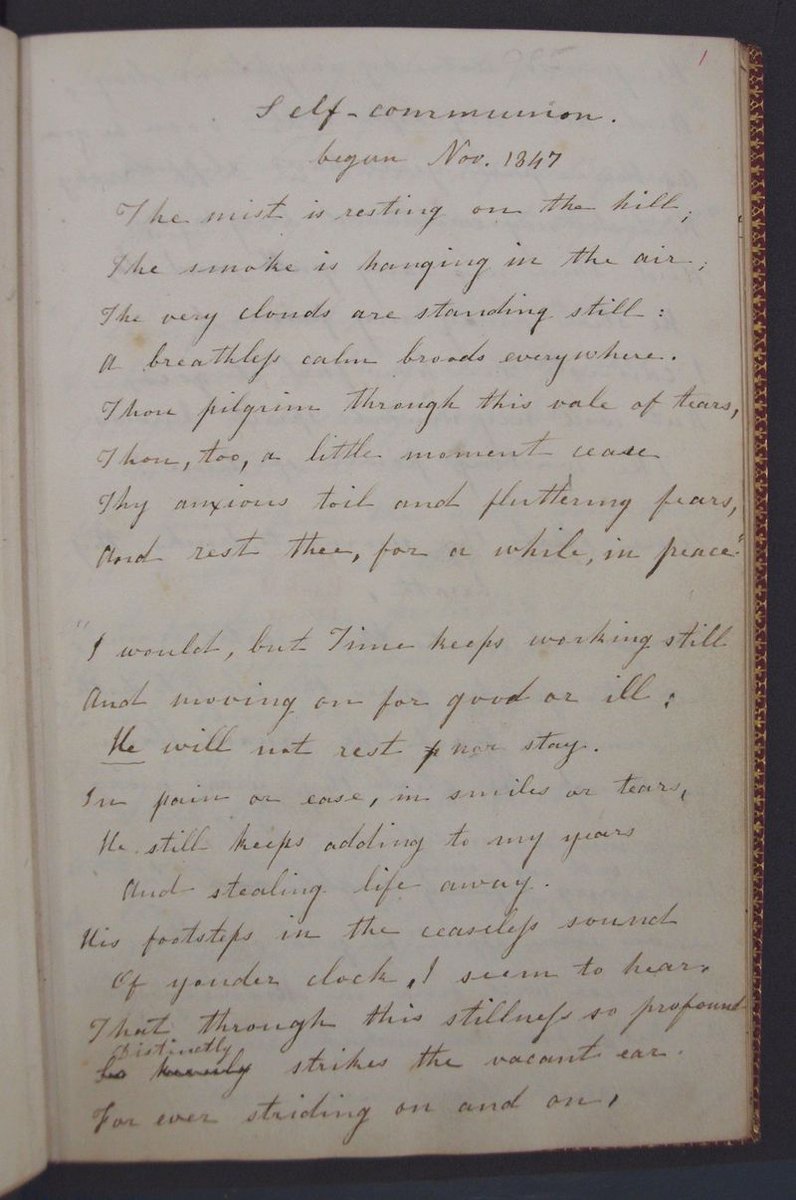 1
Self-communion.
begun Nov. 1847
The mist is resting on the hill;
The smoke is hanging in the air;
The very clouds are standing still:
A breathleſs calm broods everywhere.
Thou pilgrim through this vale of tears,
Thou, too, a little moment cease
Thy anxious toil and fluttering fears,
And rest thee, for a while, in peace."
"I would, but Time keeps working still
And moving on for good or ill:
He will not rest nor stay.
In pain or ease, in smiles or tears,
He still keeps adding to my years
And stealing life away.
His footsteps in the ceaseleſs sound
Of yonder clock, I seem to hear,
That through this stillneſs so profound
Distinctly
So strikes the vacant ear.
For ever striding on and on,